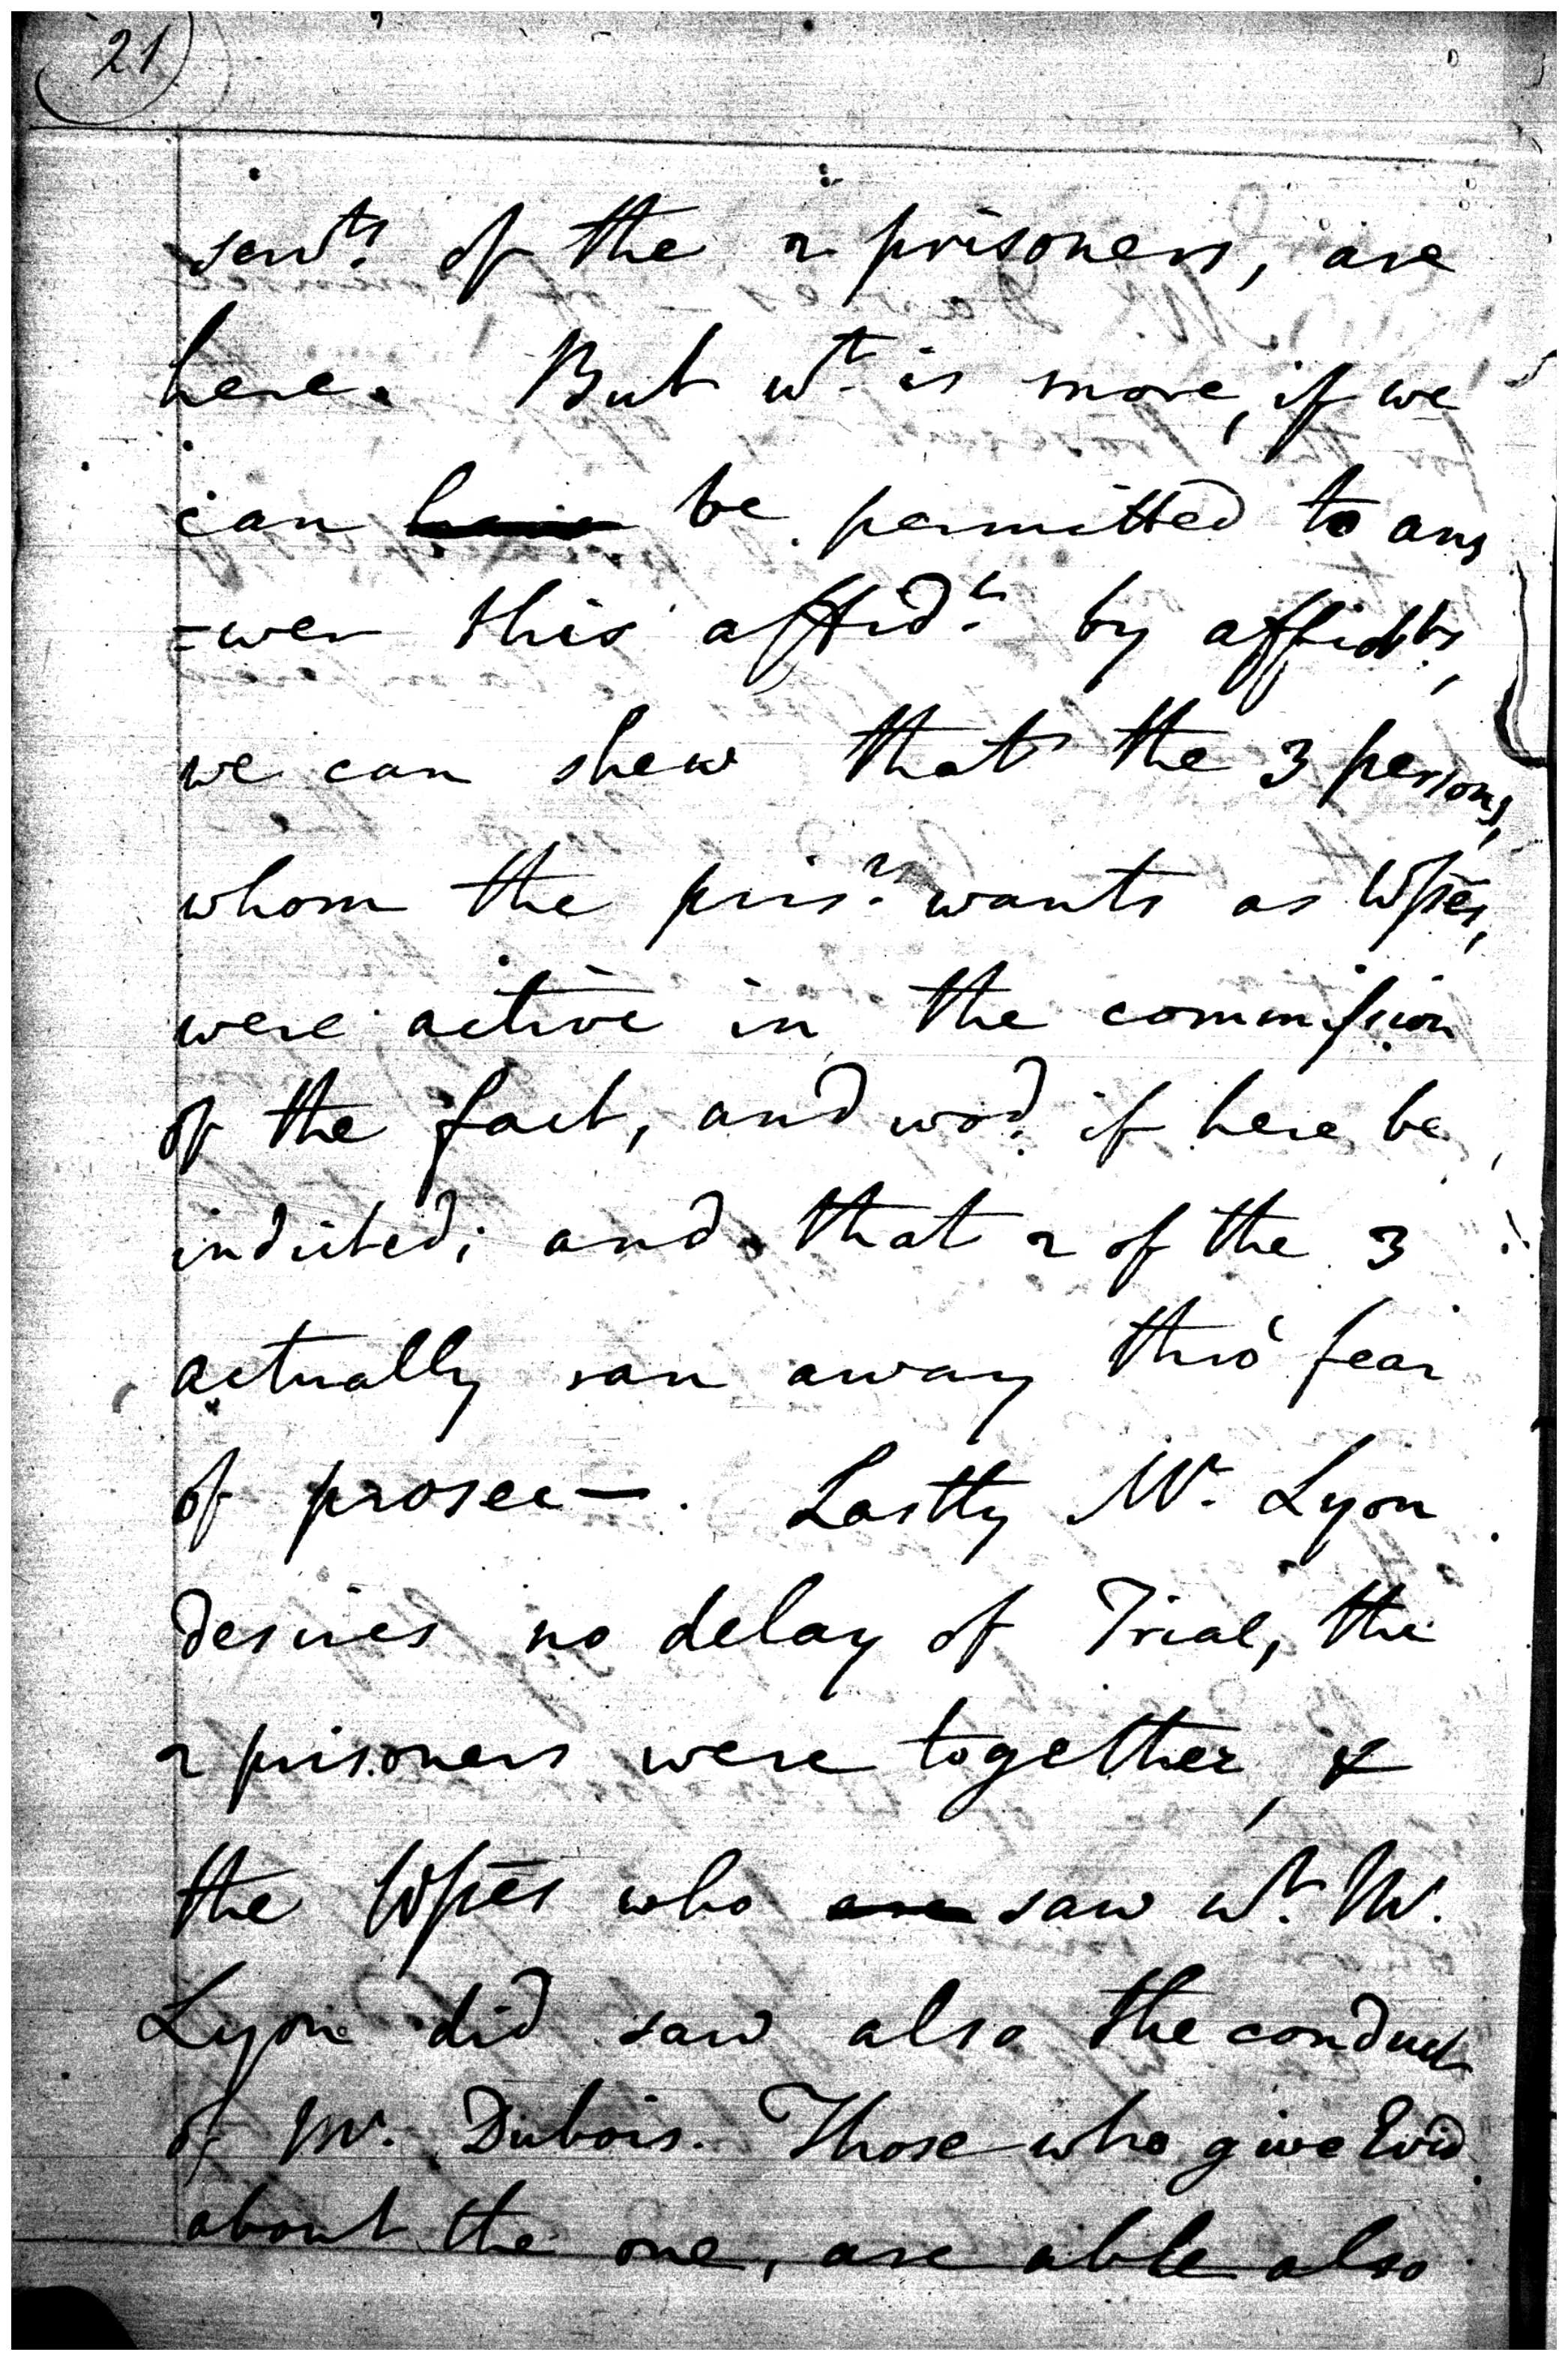 21
servts. of the 2 prisoners, are
here. But wt. is more, if we
can be permitted to ans
=wer this affidt. by affidts,
we can shew that the 3 persons,
whom the prisr. wants as Wſses,
were active in the commiſsion
of the fact, and wod. if here be
indicted; and that 2 of the 3
actually ran away thro' fear
of prosec—. Lastly Mr. Lyon
desires no delay of Trial, the
2 prisoners were together, &
the Wſses who are saw wt. Mr.
Lyon did saw also the conduct
of Mr. Dubois. Those who give Evid.
about the one, are able also